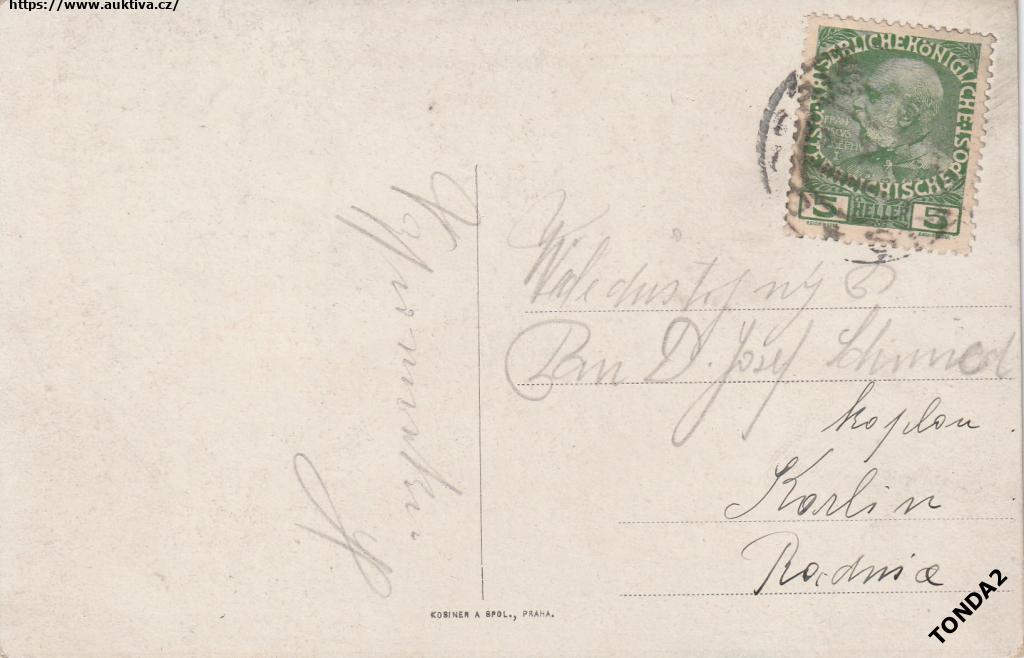 https://www.auktiva.cz/
KAISERLICHE KÖNIGLICHE ÖSTERREICHISCHE POST
5 HELLER 5
Veledůstojný P
Pan D. Josef Schmied
kaplan
Karlin
Radnice
KOSINER A SPOL., PRAHA.
TONDA2